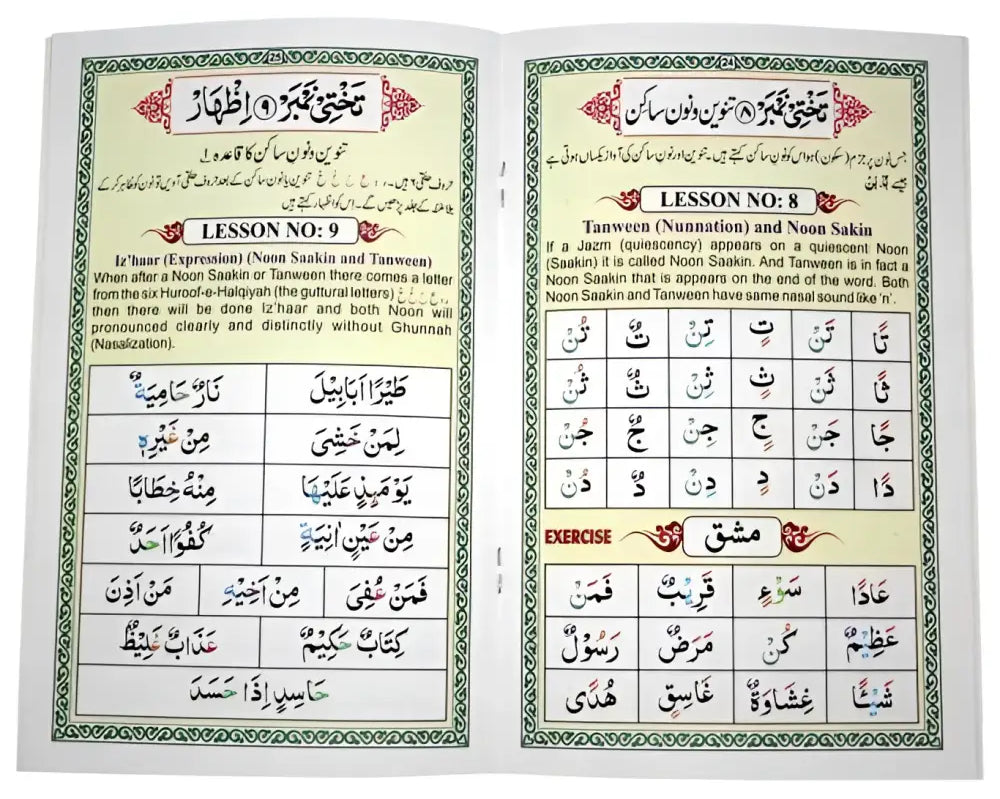 24
تَخْتِیْ نَمْبَر ۸ تنوین و نون ساکن
جس نون پر جزم (سکون) ہو اس کو نون ساکن کہتے ہیں۔ تنوین اور نون ساکن کی آواز یکساں ہوتی ہے
جیسے
LESSON NO: 8
Tanween (Nunnation) and Noon Sakin
If a Jazm (quiescency) appears on a quiescent Noon
(Saakin) it is called Noon Saakin. And Tanween is in fact a
Noon Saakin that is appears on the end of the word. Both
Noon Saakin and Tanween have same nasal sound like 'n'.
تًا تَنْ تٍ تِنْ تٌ تُنْ
ثًا ثَنْ ثٍ ثِنْ ثٌ ثُنْ
جًا جَنْ جٍ جِنْ جٌ جُنْ
دًا دَنْ دٍ دِنْ دٌ دُنْ
EXERCISE مشق
عَادًا سَوْءٍ قَرِيْبٌ فَمَنْ
عَظِيْمٌ كُنْ مَرَضٌ رَسُوْلٌ
شَيْئًا غِشَاوَةٌ غَاسِقٍ هُدًى
25
تَخْتِیْ نَمْبَر ۹ اِظْهَارْ
تنوین و نون ساکن کا قاعدہ ۱
حروف حلقی ۶ ہیں۔ ء ہ ع ح غ خ تنوین یا نون ساکن کے بعد حروف حلقی آویں تو نون کو ظاہر کر کے
بلا غنہ کے جلد پڑھیں گے۔ اس کو اظہار کہتے ہیں
LESSON NO: 9
Iz'haar (Expression) (Noon Saakin and Tanween)
When after a Noon Saakin or Tanween there comes a letter
from the six Huroof-e-Halqiyah (the guttural letters) ء ہ ع ح غ خ
then there will be done Iz'haar and both Noon will
pronounced clearly and distinctly without Ghunnah
(Nasalization).
طَيْرًا اَبَابِيْلَ نَارٌ حَامِيَةٌ
لِمَنْ خَشِىَ مِنْ غَيْرِهٖ
يَوْمَئِذٍ عَلَيْهَا مِنْهُ خِطَابًا
مِنْ عَيْنٍ اٰنِيَةٍ كُفُوًا اَحَدٌ
فَمَنْ عُفِىَ مِنْ اَخِيْهِ مَنْ اَذِنَ
كِتَابٌ حَكِيْمٌ عَذَابٌ غَلِيْظٌ
حَاسِدٍ اِذَا حَسَدَ